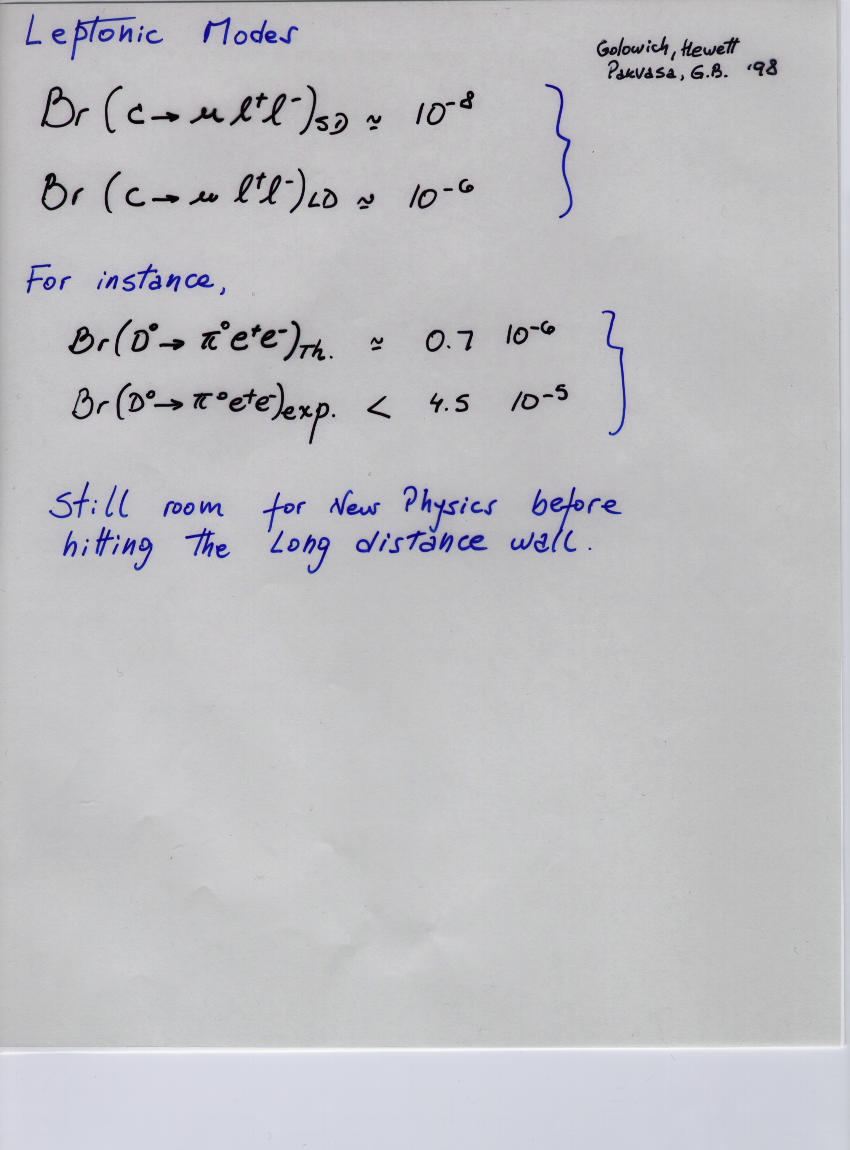 Leptonic Modes
Golowich, Hewett
Pakvasa, G.B. '98
Br (c → u l⁺l⁻)SD ≃ 10⁻⁸
Br (c → u l⁺l⁻)LD ≃ 10⁻⁶
For instance,
Br(D⁰ → π⁰e⁺e⁻)Th. ≃ 0.7 10⁻⁶
Br(D⁰ → π⁰e⁺e⁻)exp. < 4.5 10⁻⁵
Still room for New Physics before
hitting the Long distance wall.